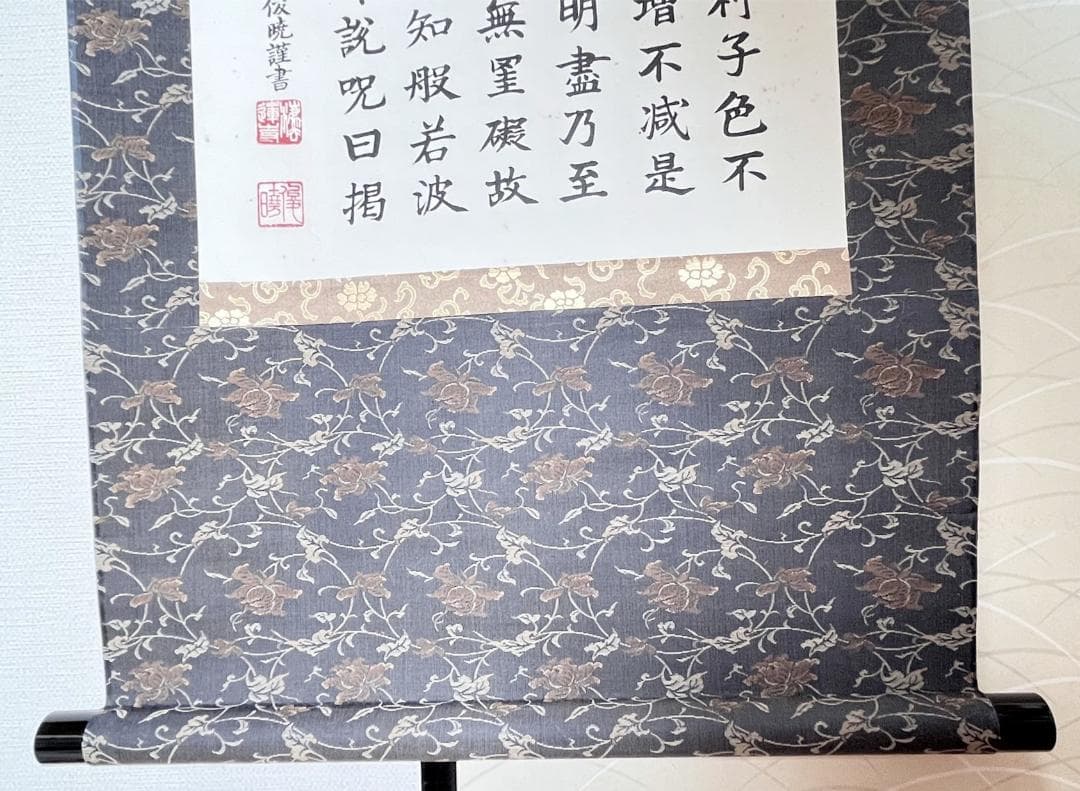 利子色不
增不減是
明盡乃至
無罣礙故
知般若波
説呪曰揭
俊暁謹書